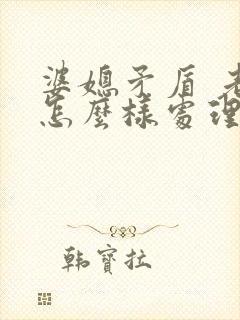 婆媳矛盾 老
怎麼樣處理
韩寶拉